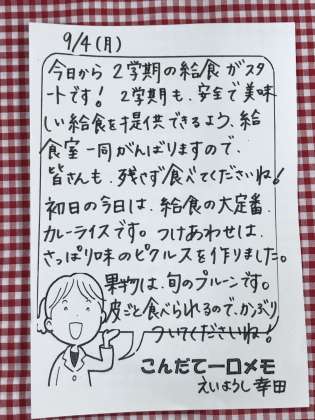 9/4(月)
今日から2学期の給食がスタ
ートです! 2学期も、安全で美味
しい給食を提供できるよう、給
食室一同がんばりますので、
皆さんも、残さず食べてくださいね!
初日の今日は、給食の大定番、
カレーライスです。つけあわせは、
さっぱり味のピクルスを作りました。
果物は、旬のプルーンです。
皮ごと食べられるので、かぶり
ついてくださいね!
こんだて一口メモ
えいようし 幸田